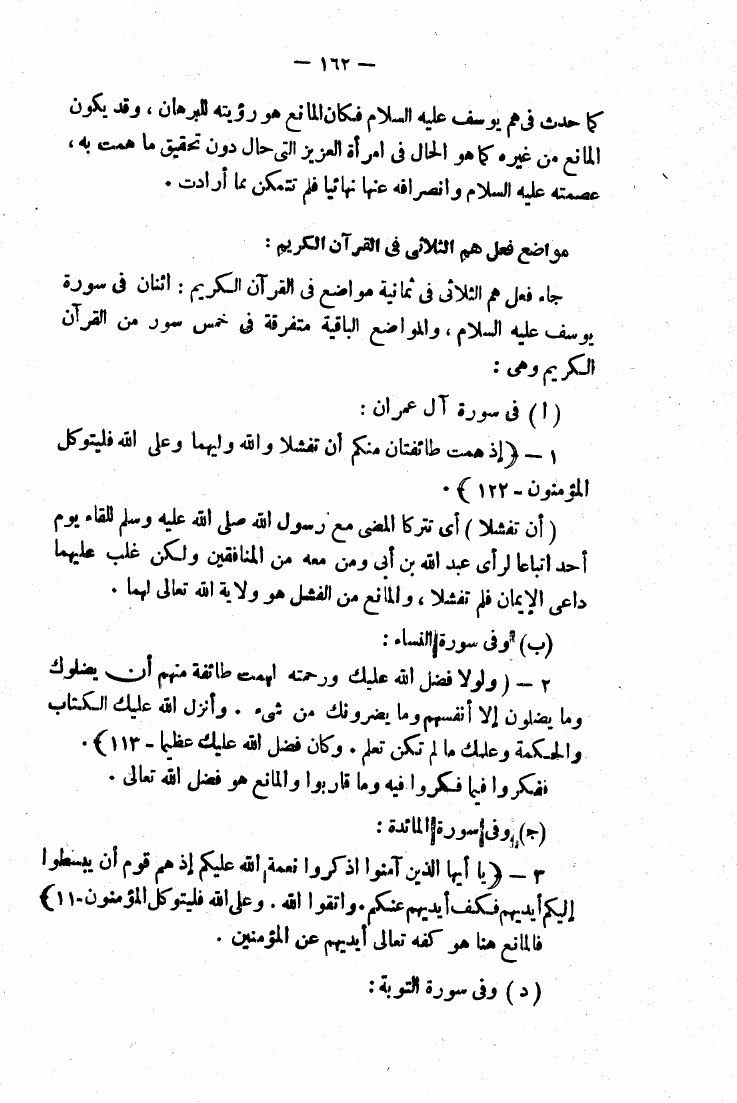 — ١٦٢ —
كما حدث فى هم يوسف عليه السلام فكان المانع هو رؤيته للبرهان ، وقد يكون
المانع من غيره كما هو الحال فى امرأة العزيز التى حال دون تحقيق ما همت به ،
عصمته عليه السلام وانصرافه عنها نهائيا فلم تتمكن بما أرادت .
مواضع فعل هم الثلاثى فى القرآن الكريم :
جاء فعل هم الثلاثى فى ثمانية مواضع فى القرآن الكريم : اثنان فى سورة
يوسف عليه السلام ، والمواضع الباقية متفرقة فى خمس سور من القرآن
الكريم وهى :
( ا ) فى سورة آل عمران :
١ — ﴿ إذ همت طائفتان منكم أن تفشلا والله وليهما وعلى الله فليتوكل
المؤمنون - ١٢٢ ﴾ .
( أن تفشلا ) أى تتركا المضى مع رسول الله صلى الله عليه وسلم للقاء يوم
أحد اتباعا لرأى عبد الله بن أبى ومن معه من المنافقين ولكن غلب عليهما
داعى الإيمان فلم تفشلا ، والمانع من الفشل هو ولاية الله تعالى لهما .
(ب) وفى سورة النساء :
٢ — ( ولولا فضل الله عليك ورحمته لهمت طائفة منهم أن يضلوك
وما يضلون إلا أنفسهم وما يضرونك من شىء . وأنزل الله عليك الكتاب
والحكمة وعلمك ما لم تكن تعلم . وكان فضل الله عليك عظيما - ١١٣ ﴾ .
ففكروا فيما فكروا فيه وما قاربوا والمانع هو فضل الله تعالى .
(ج) وفى سورة المائدة :
٣ — ﴿ يا أيها الذين آمنوا اذكروا نعمة الله عليكم إذ هم قوم أن يبسطوا
إليكم أيديهم فكف أيديهم عنكم . واتقوا الله . وعلى الله فليتوكل المؤمنون - ١١ ﴾
فالمانع هنا هو كفه تعالى أيديهم عن المؤمنين .
( د ) وفى سورة التوبة :